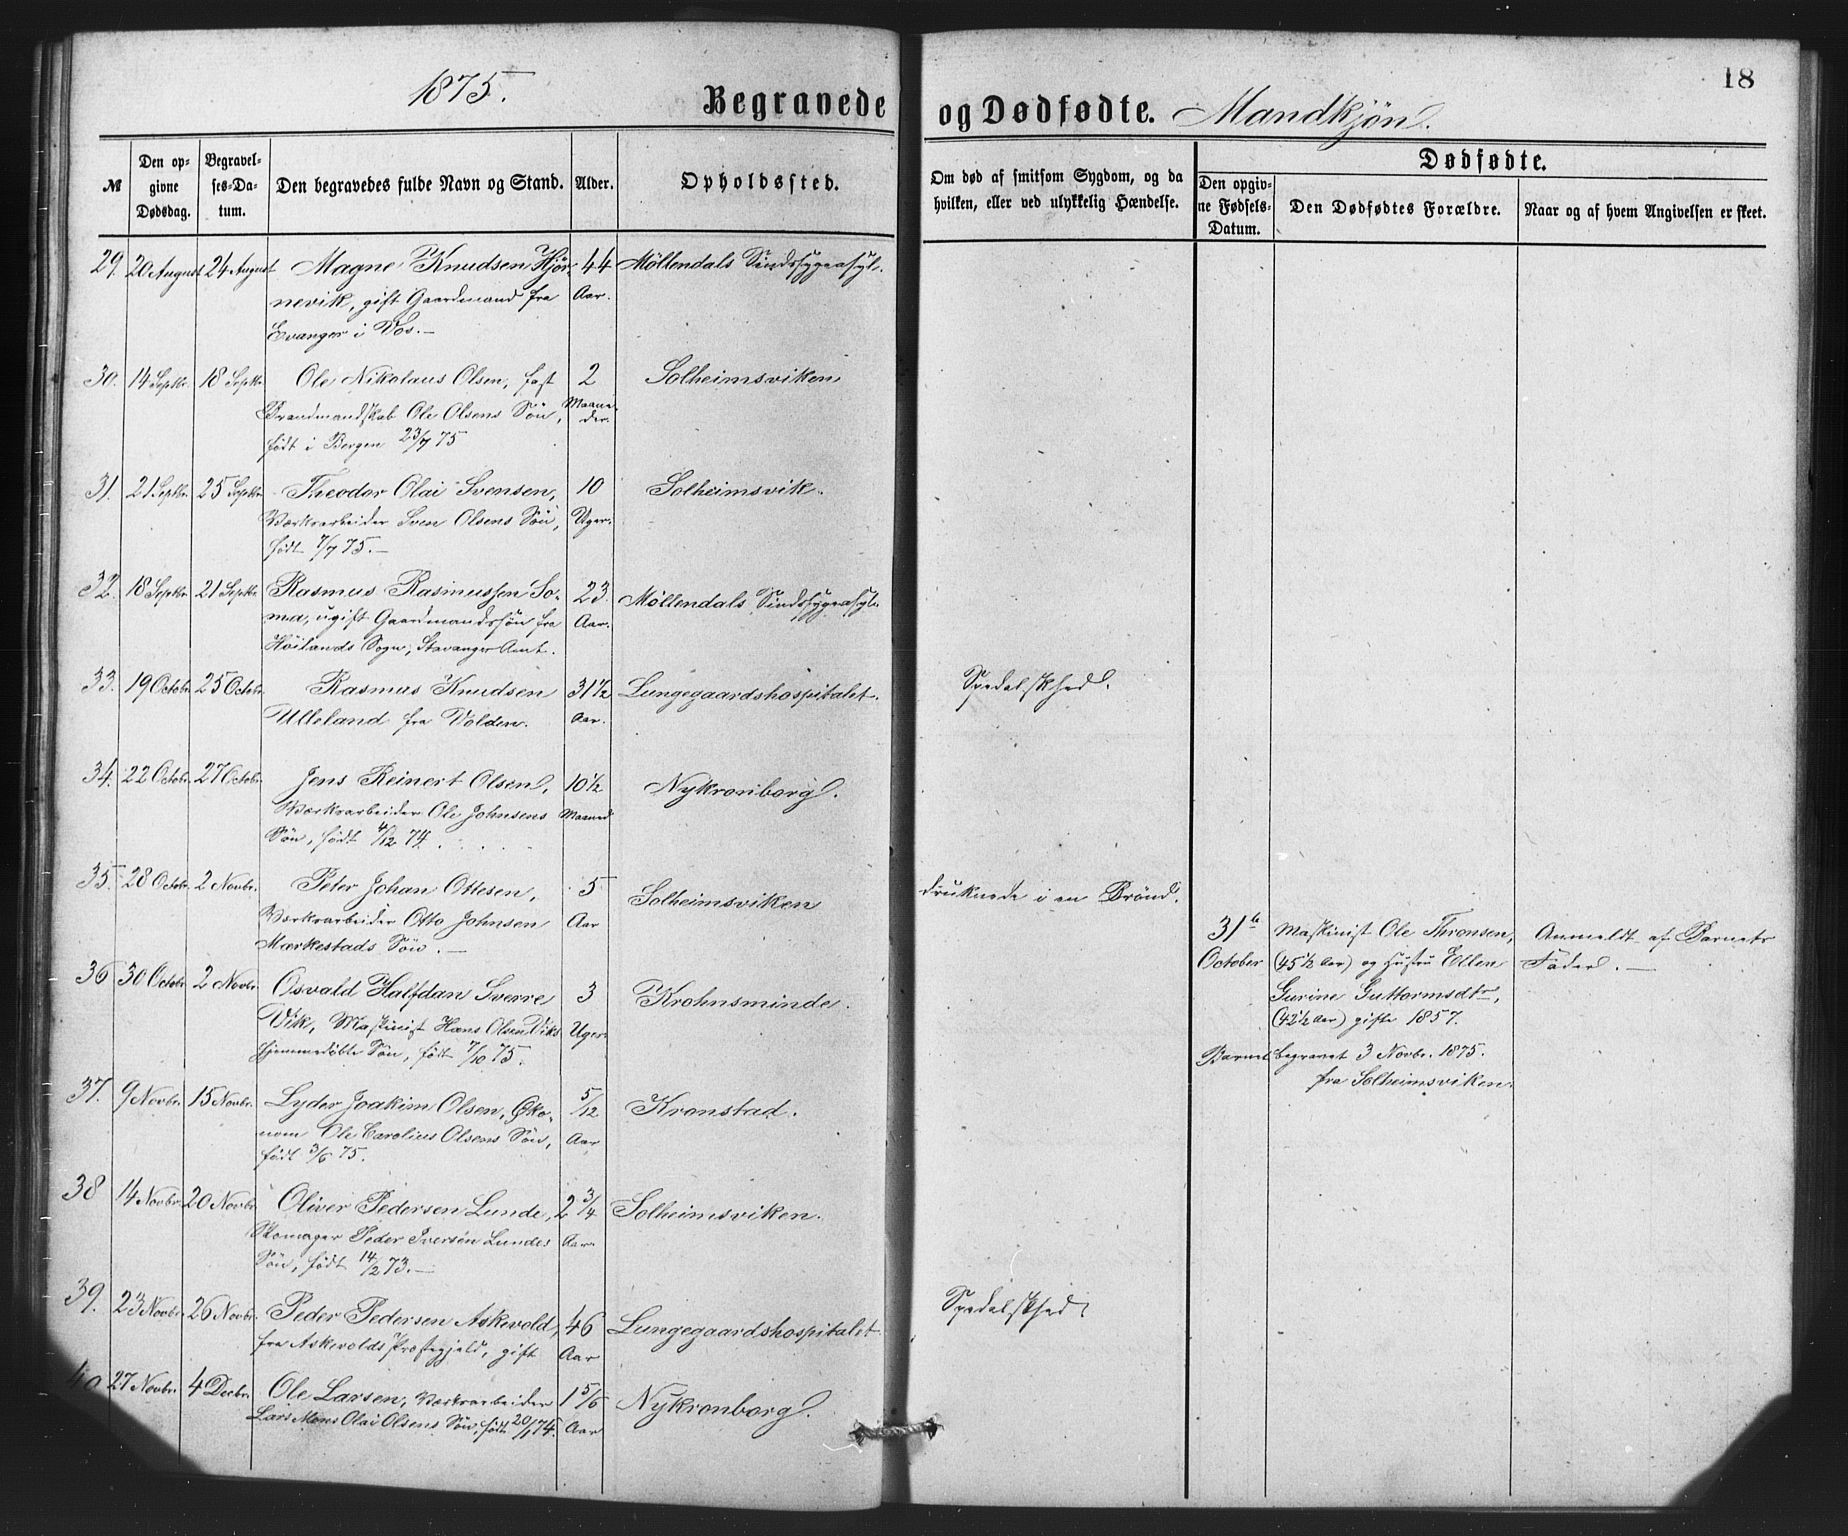 18
1875.
Begravede og Dødfødte. Mandkjøn.
№
Den op-
givne
Dødsdag.
Begravel-
ses-Da-
tum.
Den begravedes fulde Navn og Stand.
Alder.
Opholdssted.
Om død af smitsom Sygdom, og da
hvilken, eller ved ulykkelig Hændelse.
Dødfødte.
Den opgiv-
ne Fødsels-
Datum.
Den Dødfødtes Forældre.
Naar og af hvem Angivelsen er skeet.
29. 20 August 24 August Magne Knudsen Hjør- 44 Møllendals Sindssygeasyl.
nevik, gift Gaardmand fra Aar.
Evanger i Vos.—
30. 14 Septbr. 18 Septbr. Ole Nikolaus Olsen, fast 2 Solheimsviken
Brandmandskab Ole Olsens Søn, Maane-
der.
født i Bergen 23/7 75
31. 21 Septbr. 25 Septbr. Theodor Olai Svensen, 10 Solheimsvik.
Værksarbeider Sven Olsens Søn, Uger.
født 7/7 75.—
32. 18 Septbr. 21 Septbr. Rasmus Rasmussen So- 23 Møllendals Sindssygeasyl.
ma, ugift Gaardmandssøn fra Aar.
Höilands Sogn, Stavanger Amt.
33. 19 Octobr. 25 Octobr. Rasmus Knudsen 31 1/2 Lungegaardshospitalet. Spedalskhed.
Ulleland fra Volden. Aar.
34. 22 Octobr. 27 Octobr. Jens Reinert Olsen, 10 1/2 Nykronborg.
Værksarbeider Ole Johnsens Maaned
Søn, født 4/12 74.
35. 28 Octobr. 2 Novbr. Peter Johan Ottesen, 5 Solheimsviken druknede i en Brönd.
Værksarbeider Otto Johnsen Aar
Markestads Søn.—
36 30 Octobr. 2 Novbr. Osvald Halfdan Sverre 3 Krohnsminde.
Vik, Maskinist Hans Olsen Viks Uger.
hjemmedøbte Søn, født 7/10 75.
31te Maskinist Ole Thronsen, Anmeldt af Barnets
October (45 1/2 Aar) og Hustru Ellen Fader.—
Gurine Guttormsdtr,
(42 1/2 Aar) gifte 1857.
Barnet begravet 3 Novbr. 1875.
fra Solheimsviken.
37. 9 Novbr. 15 Novbr. Lyder Joakim Olsen, Øko- 5/12 Kronstad.
nom Ole Carolius Olsens Søn, Aar
født 3/6 75.
38 14 Novbr. 20 Novbr. Oliver Pedersen Lunde, 2 3/4 Solheimsviken.
Skomager Peder Iversen Lundes Aar.
Søn, født 14/2 73.—
39. 23 Novbr. 26 Novbr. Peder Pedersen Askevold, 46 Lungegaardshospitalet Spedalskhed.
fra Askevolds Præstegjeld, gift Aar
40 27 Novbr. 4 Decbr. Ole Larsen, Værksarbeider 1 5/6 Nykronborg.
Lars Mons Olai Olsens Søn, født 20/1 74. Aar